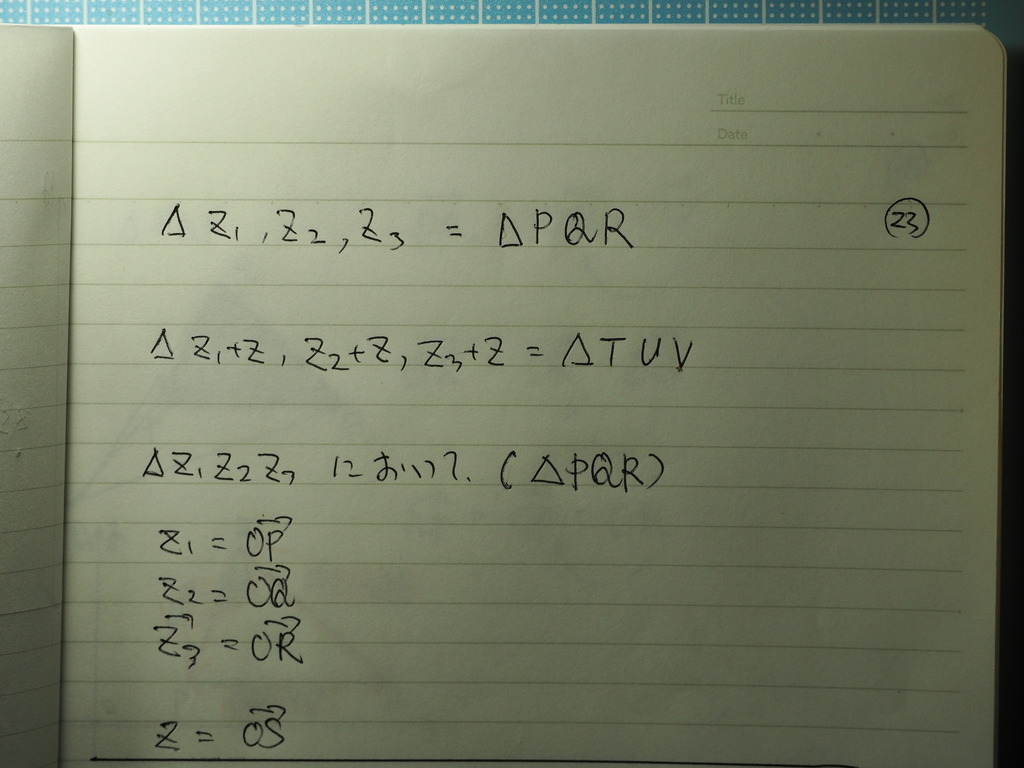 Title
Date
△ Z₁, Z₂, Z₃ = △PQR ㉓
△ Z₁+Z, Z₂+Z, Z₃+Z = △TUV
△Z₁Z₂Z₃ において. (△PQR)
Z₁ = OP→
Z₂ = OQ→
Z₃→ = OR→
Z = OS→